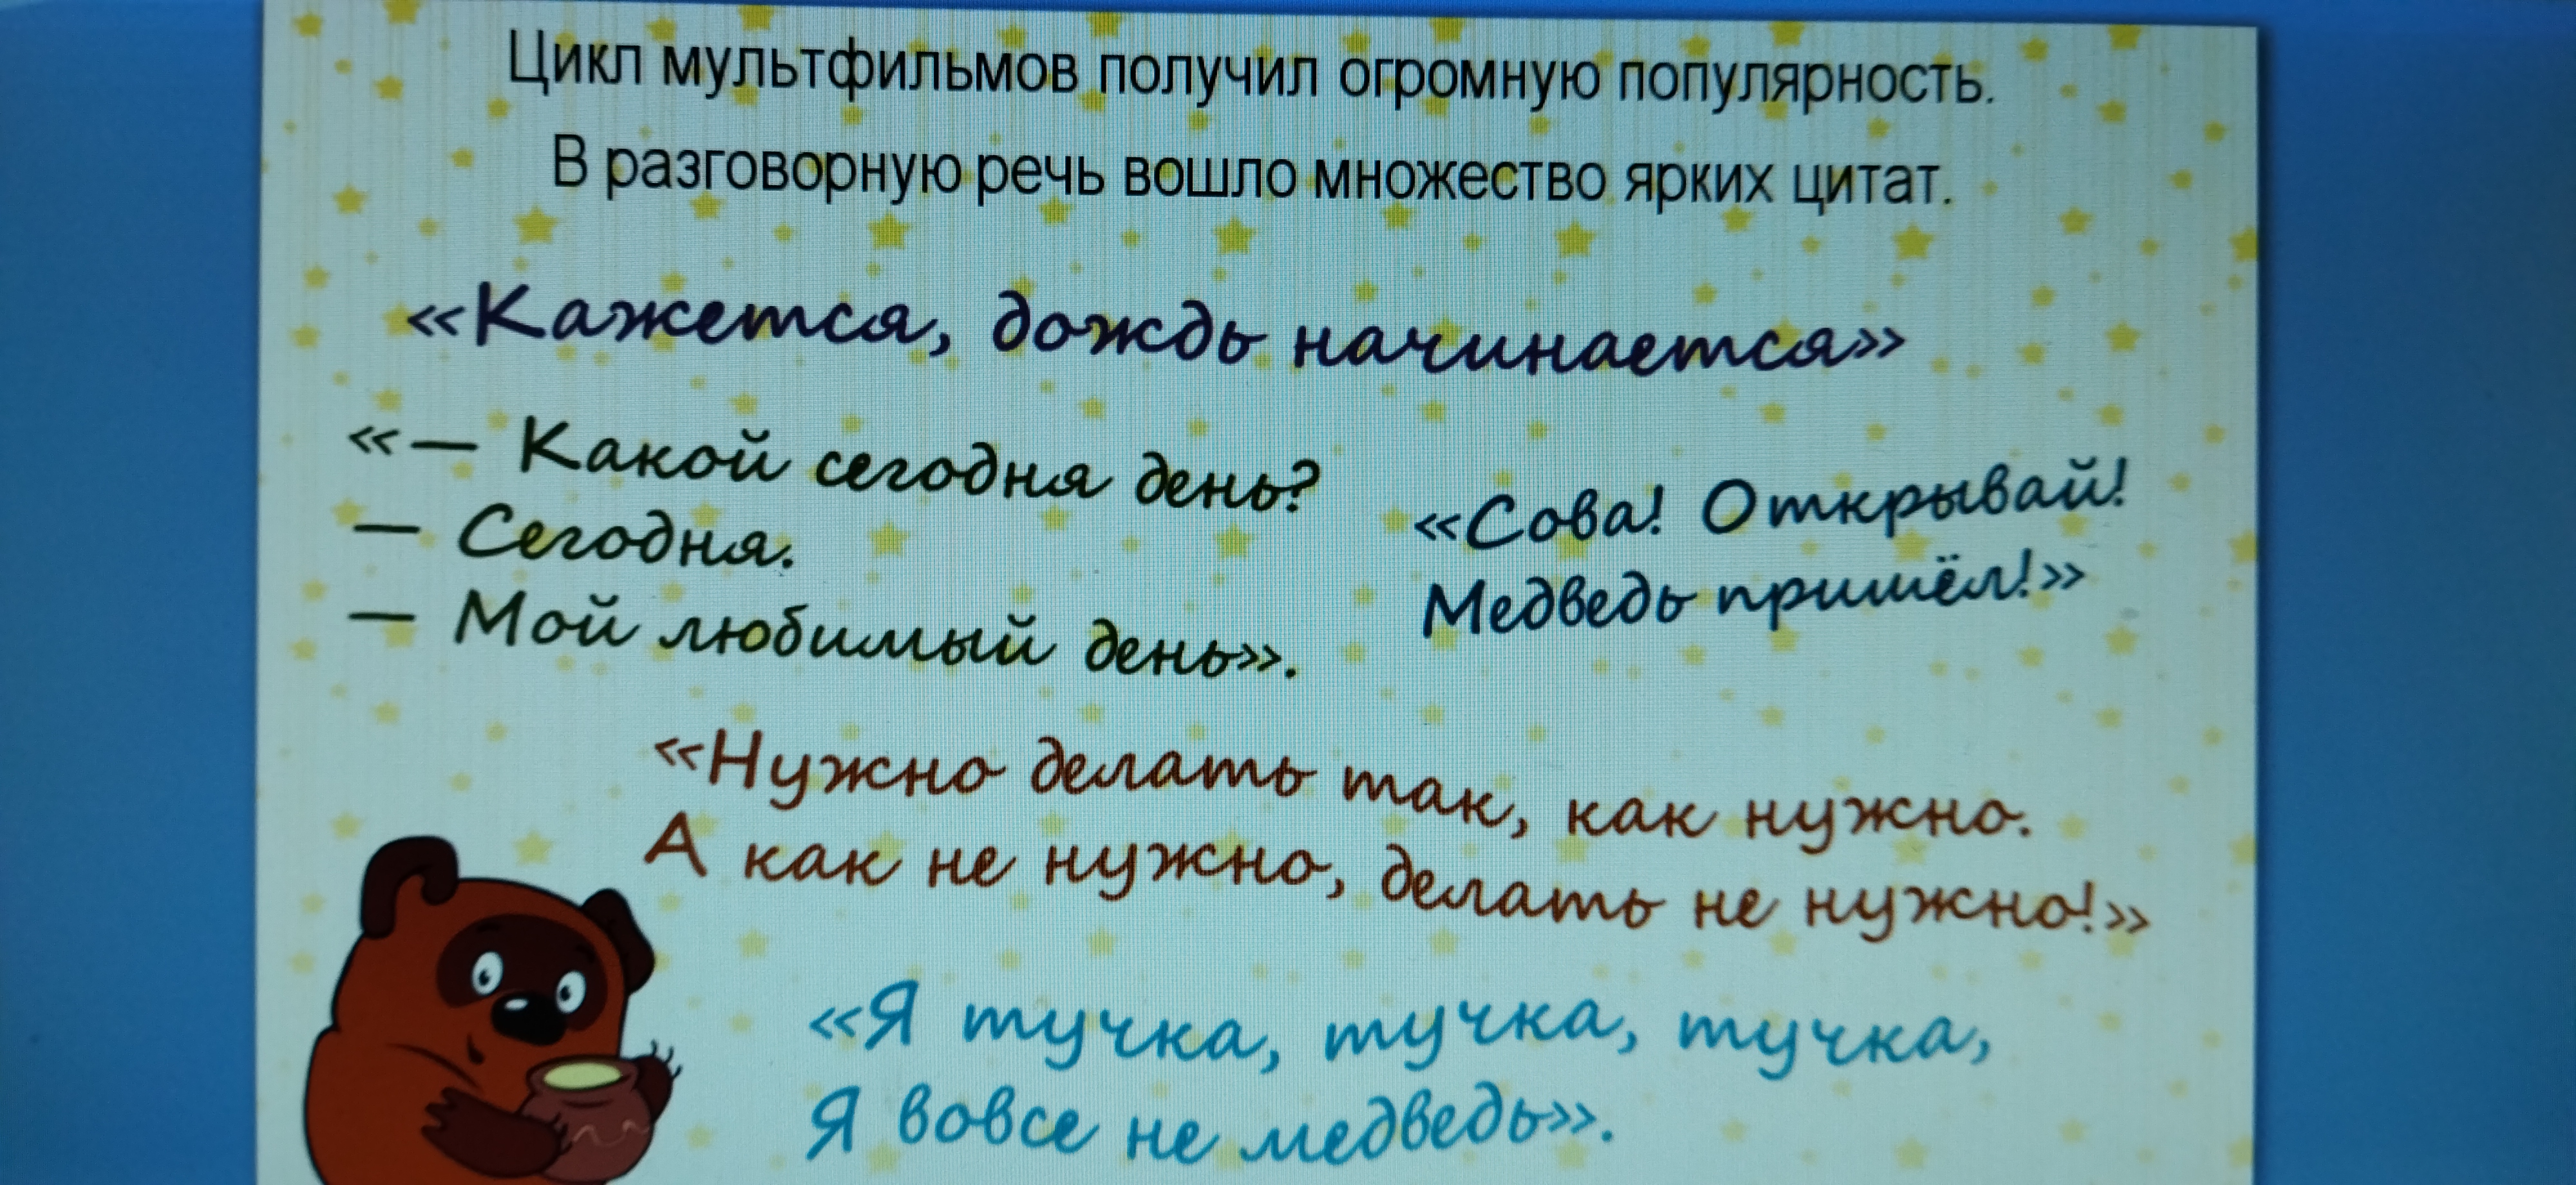 Цикл мультфильмов получил огромную популярность.
В разговорную речь вошло множество ярких цитат.
«Кажется, дождь начинается»
«— Какой сегодня день?
— Сегодня.
— Мой любимый день».
«Сова! Открывай!
Медведь пришёл!»
«Нужно делать так, как нужно.
А как не нужно, делать не нужно!»
«Я тучка, тучка, тучка,
Я вовсе не медведь».